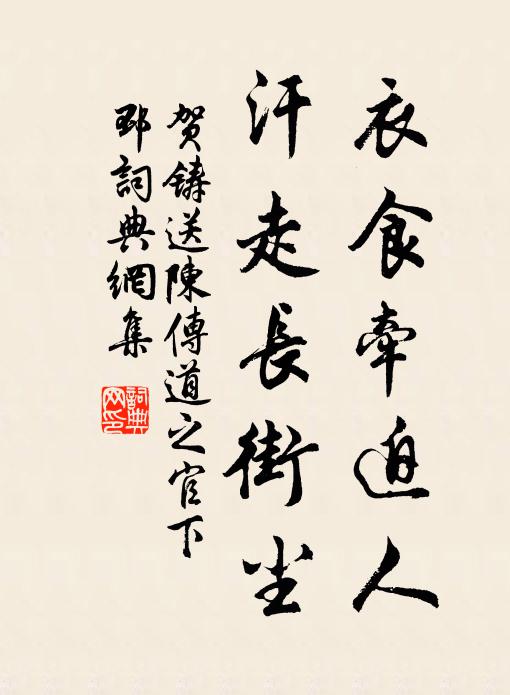 衣食牽迫人
汗走長街尘
賀鑄送陳傳道之官下
邳詞典網集
詞典网印